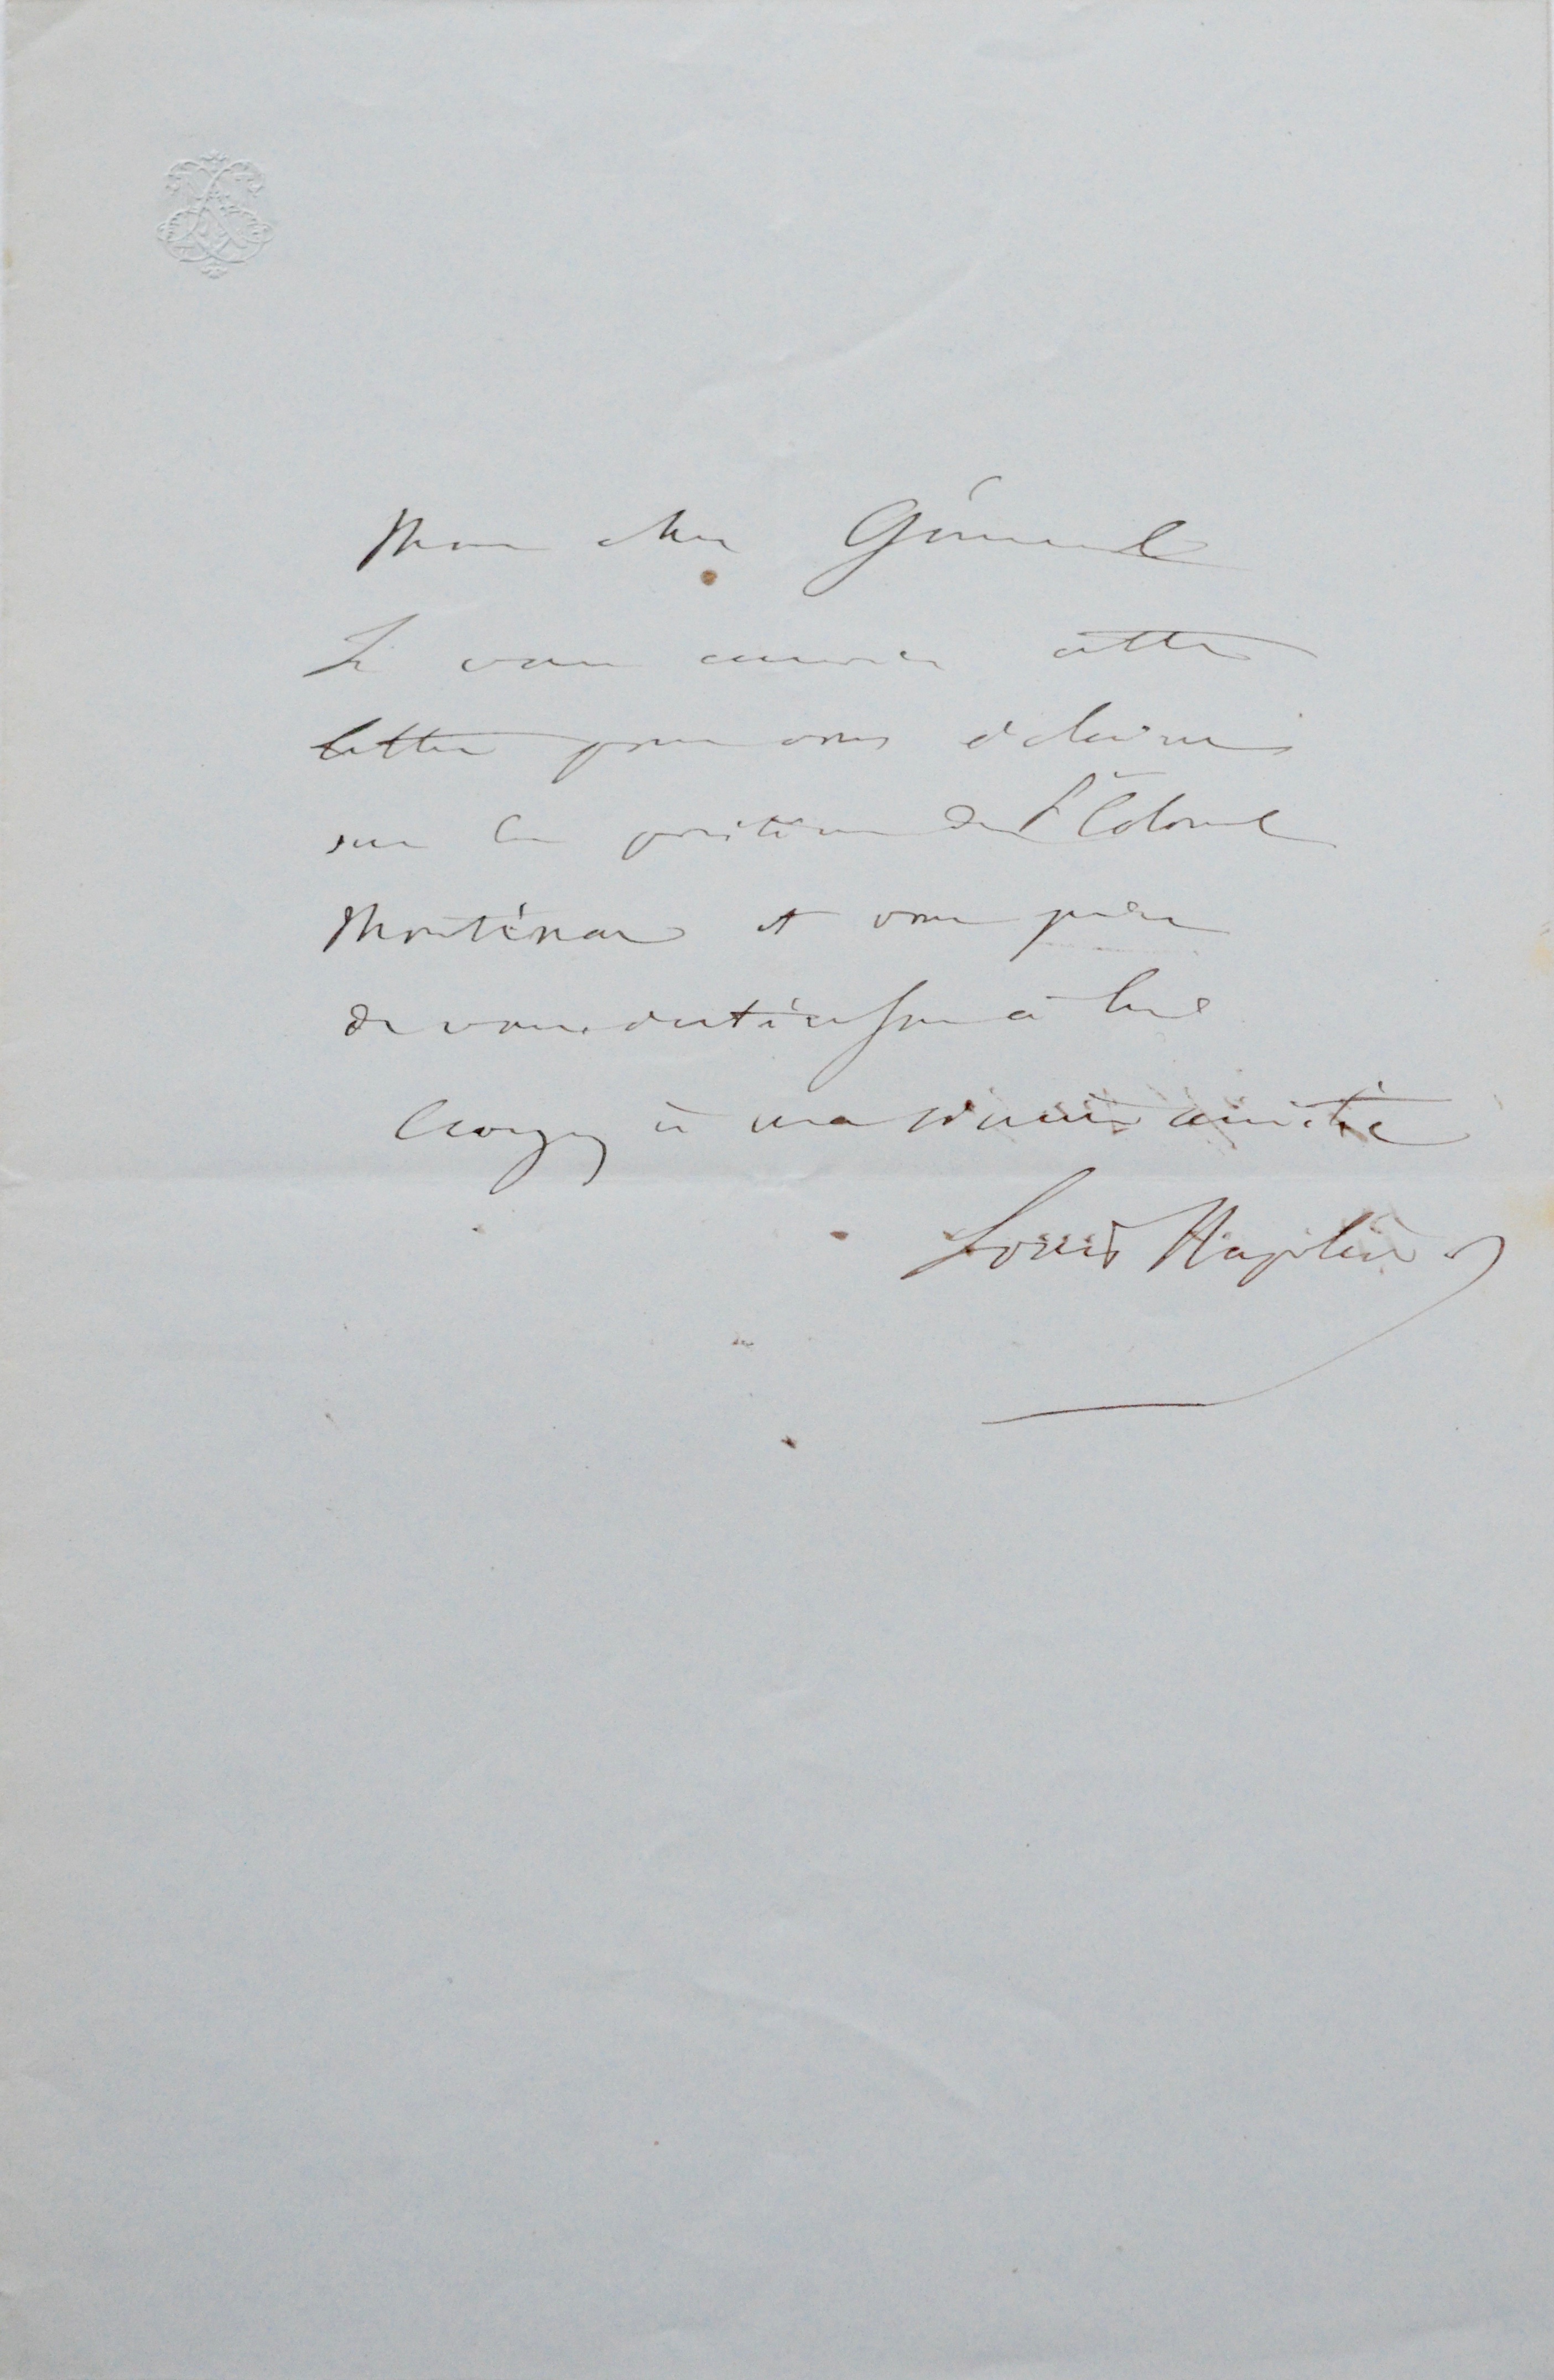 Mon cher Général
Je vous envoie cette
lettre pour vous éclairer
sur la position du Lt Colonel
et vous prie
de vous intéresser à lui
Croyez à ma sincère amitié
Louis Napoléon